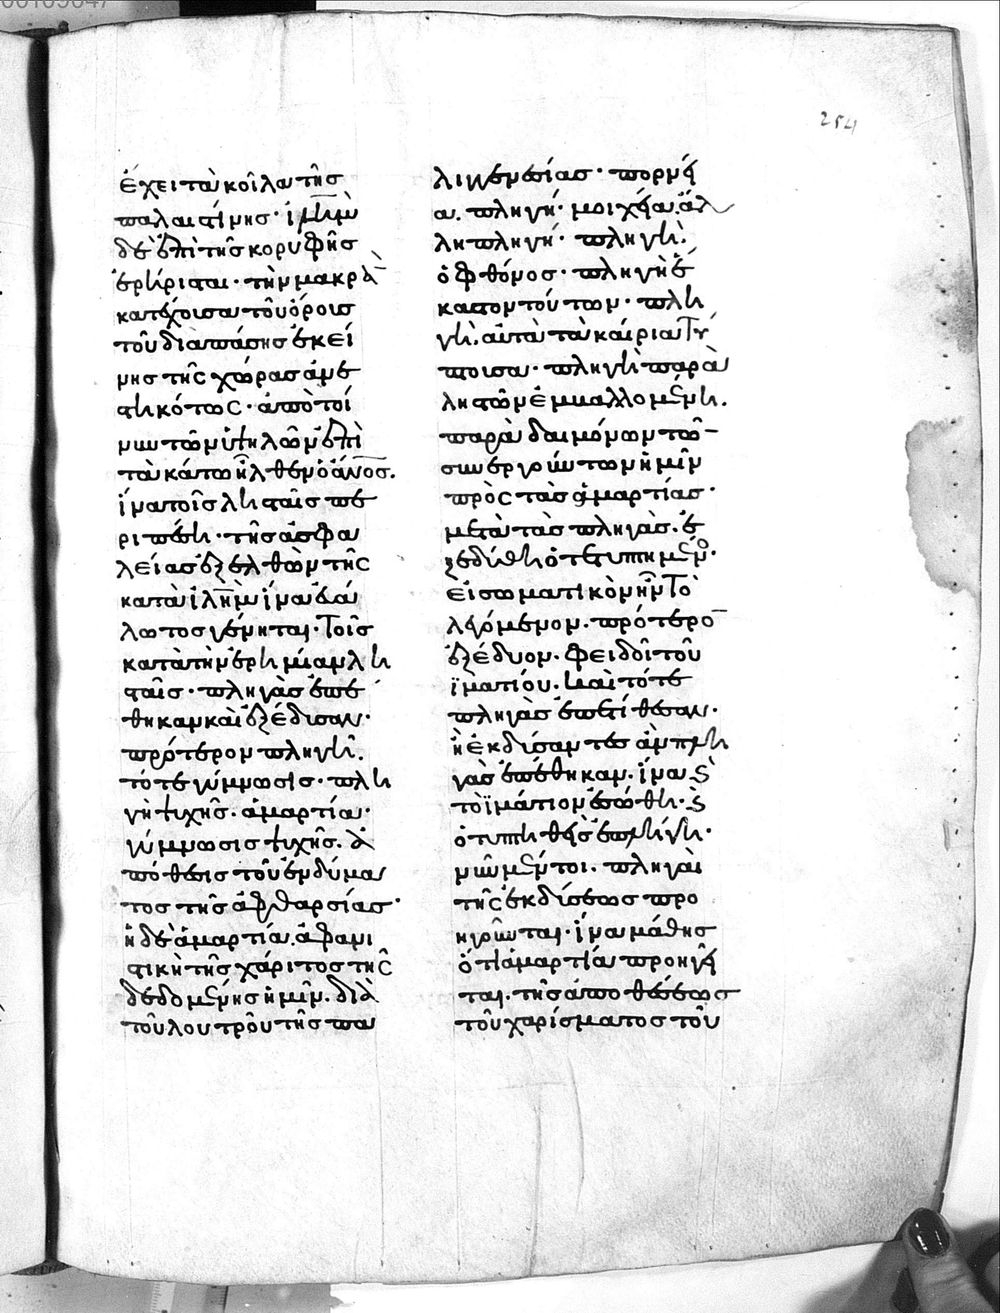 254
ἔχει τὰ κοῖλα τῆς
παλαιστίνης· ἱ λ̅η̅μ̅
δὲ ἐπὶ τῆς κορυφῆς
ἐρήρισται· τὴν μακρὰ̅
κατέχοισα τοῦ ὄροισ
τοῦ διαπάσης ἐκεί
νης τῆς χώρας ἀνε
στηκότως· ἀπὸ τοί
νυν τῶν ὑψηλῶν ἐπὶ
τὰ κάτω ἦλθεν ὁ ἄν̅ο̅σ̅.
ἵνα τοῖς λησταῖς πε
ριπέση· τῆς ἀσφα
λείας ἐξελθὼν τῆς
κατὰ ἱλ̅ὴ̅μ̅ ἵνα ἑά
λωτος γένηται· Τοῖς
κατὰ τὴν ἐρημίαν λη
σταῖς· πληγὰς ἐπέ
θηκαν καὶ ἐξέδισαν·
πρότερον πληγὴ.
τότε γύμνωσις· πλη
γὴ ψυχῆς. ἁμαρτία·
γύμνωσις ψυχῆς. ἀ
πόθεσις τοῦ ἐνδύμα
τος τῆς ἀφθαρσίας·
ἡ δὲ ἁμαρτία. ἀφανι
στικὴ τῆς χάριτος τῆς
δεδομένης ἡμῖν. διὰ
τοῦ λουτροῦ τῆς πα
λιγγενεσίας· πορνεί
α. πληγή· μοιχεία. ἄλ
λη πληγή· πληγὴ.
ὁ φθόνος· πληγὴ ἕ
καστον τούτων· πλη
γὴ. αὐτὰ τὰ καίρια Τύ
ποισα· πληγὴ παρὰ
ληστῶν ἐμβαλλομένη.
παρὰ δαιμόνων τῶ̅
συνεργούντων ἡμῖν
πρὸς τὰς ἁμαρτίας·
μετὰ τὰς πληγὰς. ἐ
ξεδύθη ὁ τετυπημένος·
εἰ σωματικὸν ἦν Τὸ
λεγόμενον. πρότερο̅
ἐξέδυον. φειδοῖ τοῦ
ἱματίου. καὶ τότε
πληγὰς ἐπετίθεσαν·
ἢ ἐκδίσαντες ἂν πλη
γὰς ἐπέθηκαν. ἵνα καὶ
τὸ ἱμάτιον σωθῆ· καὶ
ὁ τυπτηθεὶς ἐπληγή·
νῦν μέντοι. πληγαὶ
τῆς ἐκδύσεως προ
ηγοῦνται· ἵνα μάθης
ὅτι ἁμαρτία προηγεῖ
ται. τῆς ἀποθέσεως
τοῦ χαρίσματος τοῦ